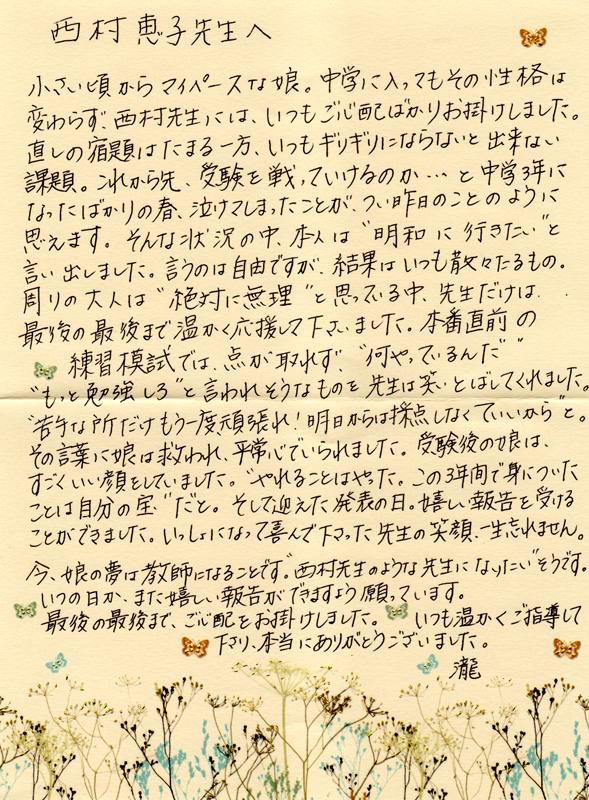 西村恵子先生へ
小さい頃からマイペースな娘。中学に入ってもその性格は
変わらず、西村先生には、いつもご心配ばかりお掛けしました。
直しの宿題はたまる一方、いつもギリギリにならないと出来ない
課題。これから先、受験を戦っていけるのか…と中学3年に
なったばかりの春、泣けてしまったことが、つい昨日のことのように
思えます。そんな状況の中、本人は“明和に行きたい”と
言い出しました。言うのは自由ですが、結果はいつも散々たるもの。
周りの大人は“絶対に無理”と思っている中、先生だけは、
最後の最後まで温かく応援して下さいました。本番直前の
練習模試では、点が取れず、“何やっているんだ”
“もっと勉強しろ”と言われそうなものを先生は笑いとばしてくれました。
“苦手な所だけもう一度頑張れ！明日からは採点しなくていいから”と。
その言葉に娘は救われ、平常心でいられました。受験後の娘は、
すごくいい顔をしていました。“やれることはやった。この3年間で身についた
ことは自分の宝”だと。そして迎えた発表の日。嬉しい報告を受ける
ことができました。いっしょになって喜んで下さった先生の笑顔、一生忘れません。
今、娘の夢は教師になることです。“西村先生のような先生になりたい”そうです。
いつの日か、また嬉しい報告ができますよう願っています。
最後の最後まで、ご心配をお掛けしました。 いつも温かくご指導して
下さり、本当にありがとうございました。
瀧